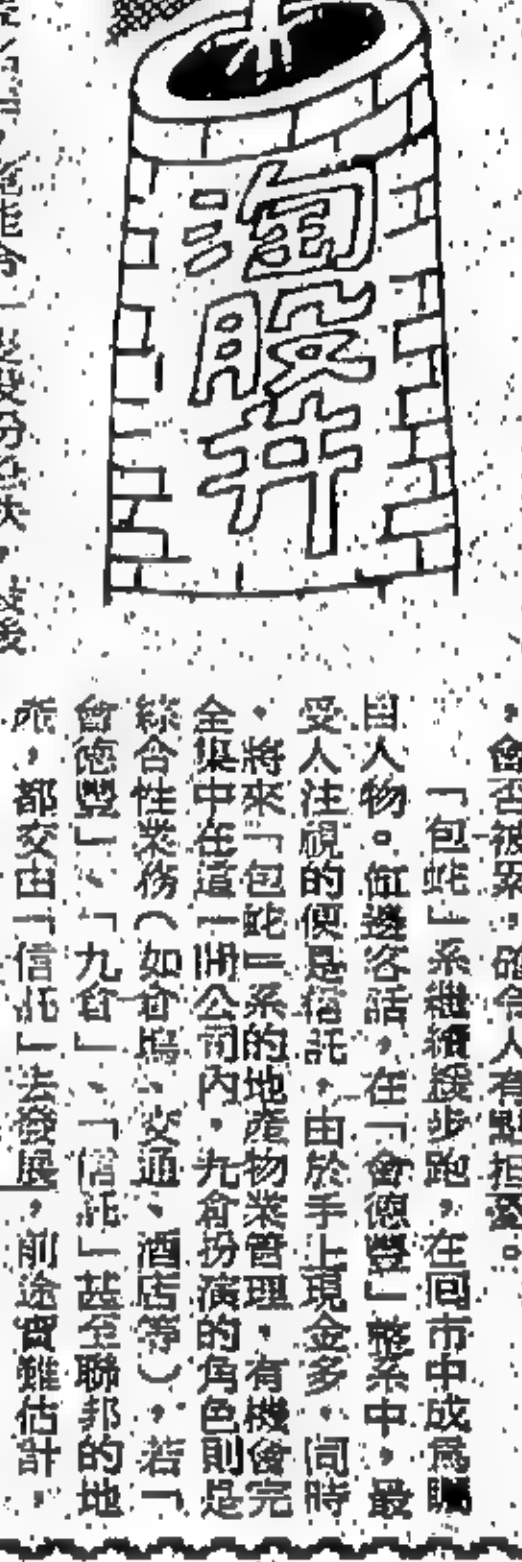 淘股井
，會否被累，確令人有點担憂。
「包蛇」系繼續緩步跑，在囘市中成爲矚
目人物。㑑邊客話，在「會德豐」整系中，最
受人注視的便是信託，由於手上現金多，同時
，將來「包蛇」系的地產物業管理，有機會完
全集中在這一間公司內，九倉扮演的角色則是
綜合性業務（如倉塢、交通、酒店等），若「
會德豐」、「九倉」、「信託」甚至聯邦的地
產，都交由「信託」去發展，前途實難估計，